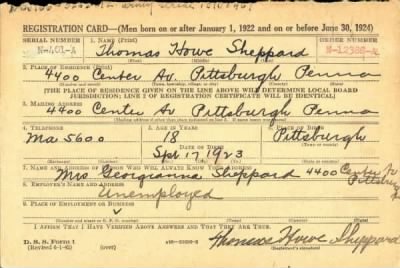 REGISTRATION CARD—(Men born on or after January 1, 1922 and on or before June 30, 1924)
SERIAL NUMBER 1. NAME (Print) ORDER NUMBER
N-401-A Thomas Howe Sheppard N-12388-A
(First) (Middle) (Last)
2. PLACE OF RESIDENCE (Print)
4400 Center Av Pittsburgh Penna
[THE PLACE OF RESIDENCE GIVEN ON THE LINE ABOVE WILL DETERMINE LOCAL BOARD
JURISDICTION; LINE 2 OF REGISTRATION CERTIFICATE WILL BE IDENTICAL]
3. MAILING ADDRESS
4400 Center Av Pittsburgh Penna
4. TELEPHONE 5. AGE IN YEARS 6. PLACE OF BIRTH
Ma 5600 18 Pittsburgh
DATE OF BIRTH
17 1923
7. NAME AND ADDRESS OF PERSON WHO WILL ALWAYS KNOW YOUR ADDRESS
Mrs Georgianna Sheppard 4400 Center Av
Pittsburgh
8. EMPLOYER'S NAME AND ADDRESS
Unemployed
9. PLACE OF EMPLOYMENT OR BUSINESS
I AFFIRM THAT I HAVE VERIFIED ABOVE ANSWERS AND THAT THEY ARE TRUE.
D. S. S. Form 1
(over)
Thomas Howe Sheppard
(Registrant's signature)